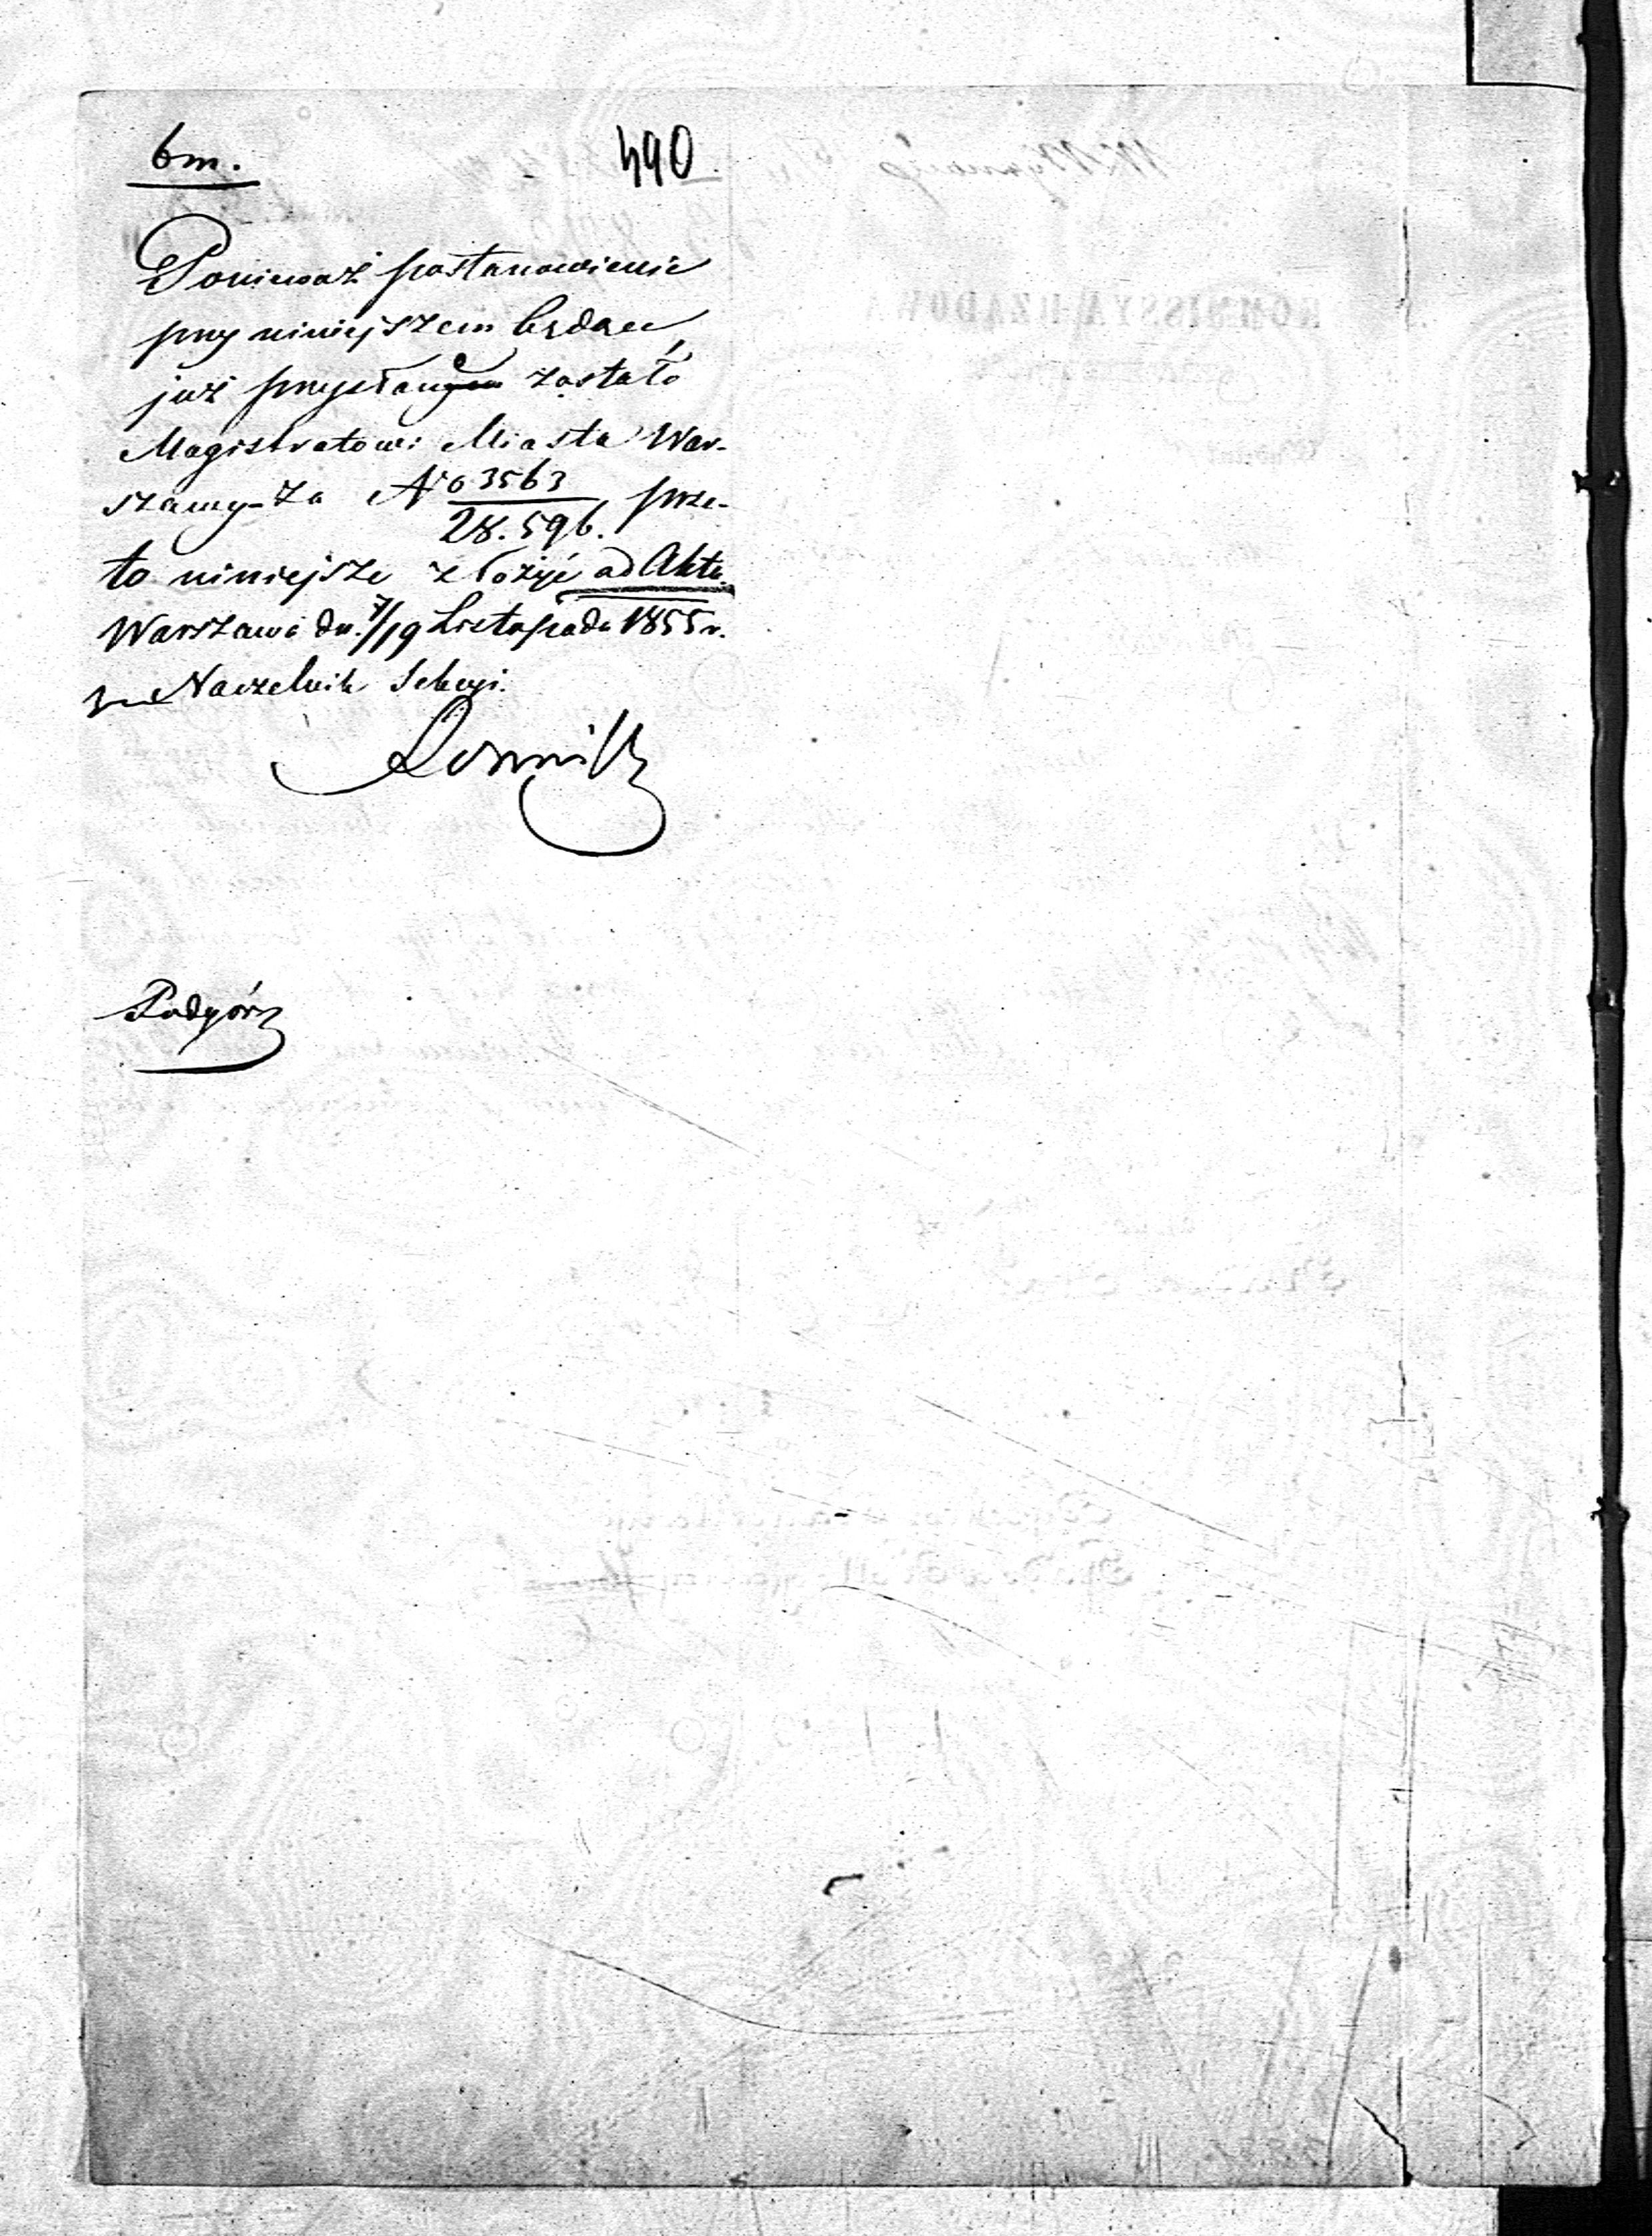 bm. 490
Ponieważ postanowienie
przy niniejszem będące
już przysłane zostało
Magistratowi Miasta War-
szawy za No 3563
28.596. prze-
to niniejsze złożyć ad Akta
Warszawa dn. 7/19 Listopada 1855 r.
Naczelnik Sekcyi.
Podgórz